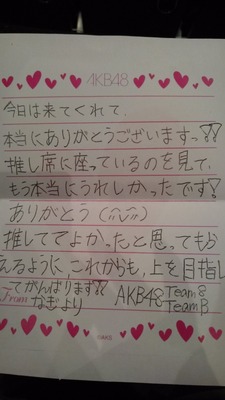 AKB48
今日は来てくれて、
本当にありがとうございますっ!!
推し席に座っているのを見て、
もう本当にうれしかったです!
ありがとう(
推しててよかったと思ってもら
えるように、これからも、上を目指し
てがんばります!!
From なぎより AKB48 Team8
TeamB
©AKS